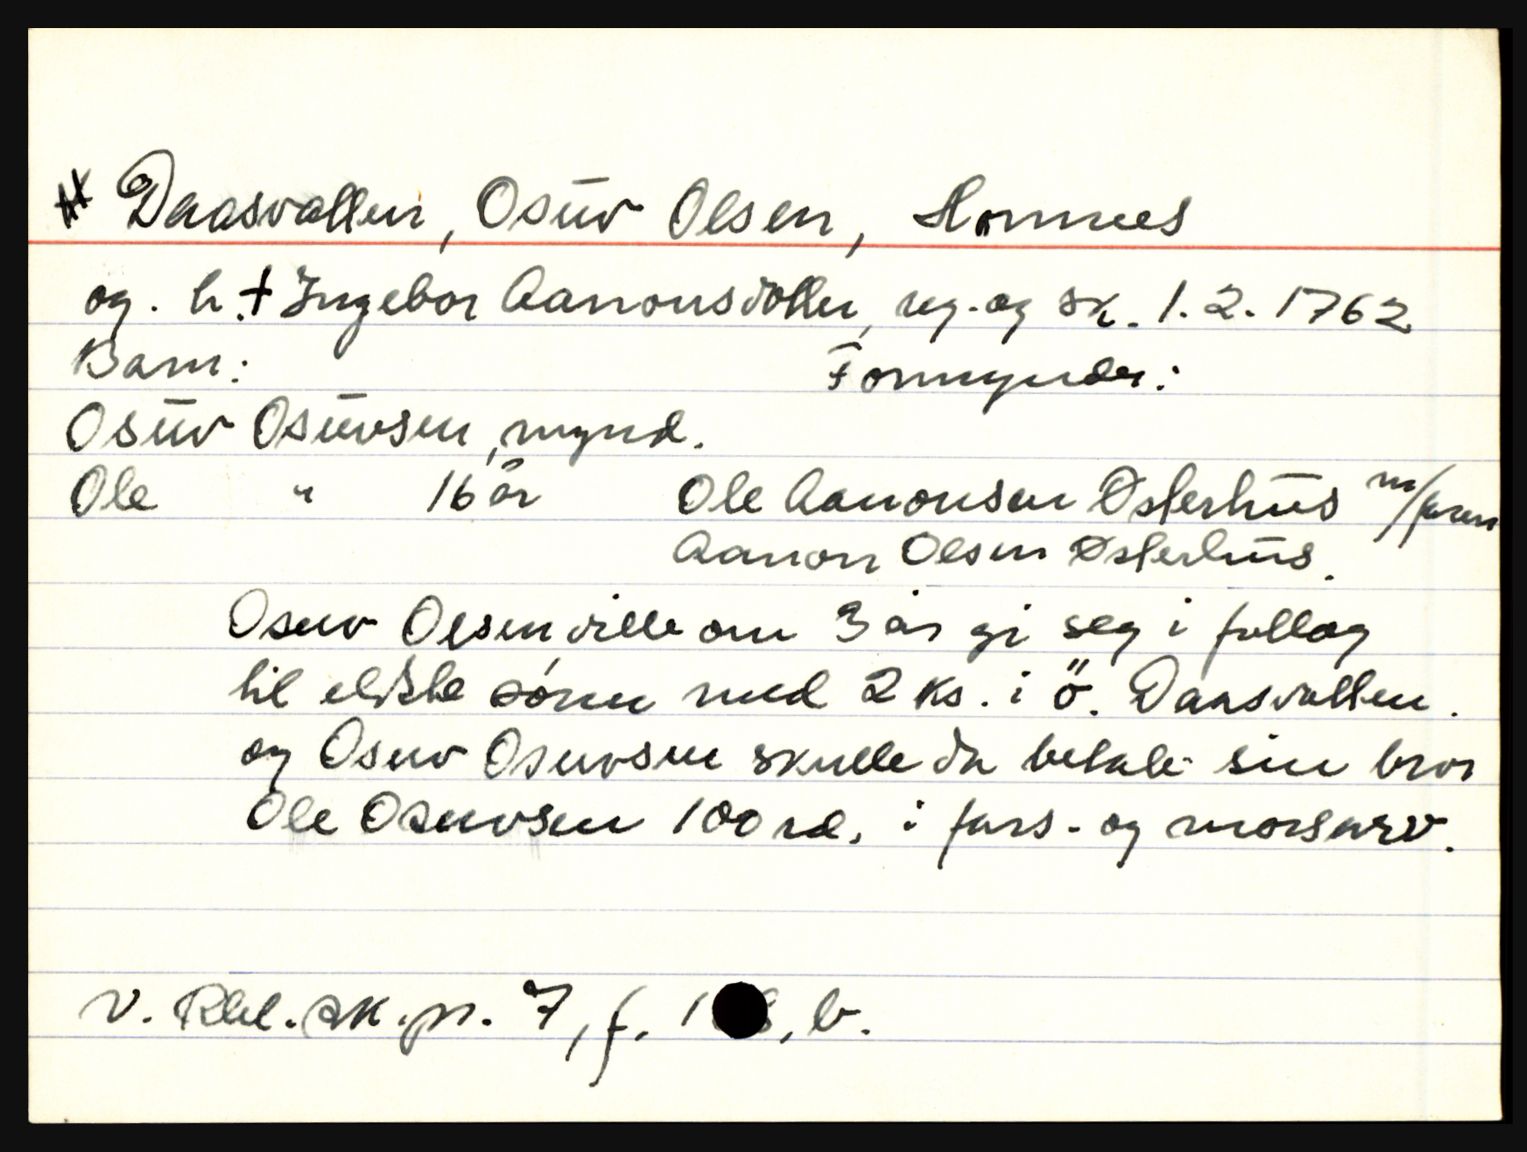 Daasvatten, Osuv Olsen, Hornnes
og. h. † Ingebor Aanonsdotter, reg. og sk. 1.2.1762
Barn: Formynder:
Osuv Osuvsen, mynd.
Ole " 16 år Ole Aanonsen Østerhus m/faren
Aanon Olsen Østerhus.
Osuv Olsen ville om 3 år gi seg i follog
til eldste sønn med 2 ks. i ö. Daasvatten.
og Osuv Osuvsen skulle da betale sin bror
Ole Osuvsen 100 rd. i fars- og morsarv.
v. Rbl. sk. pr. 7, f. 1 8, b.